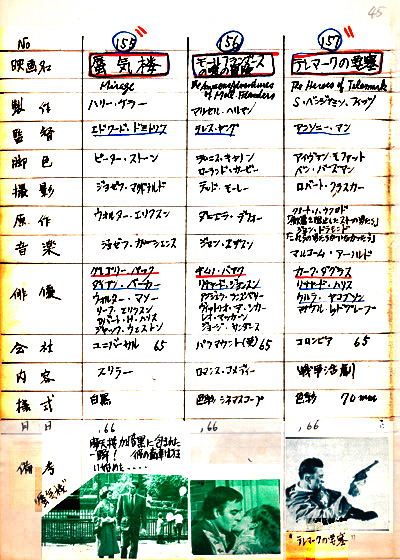 45
No 155 156 157
映画名 蜃気楼 モール・フランダースの愛の冒険 テレマークの要塞
Mirage The Amorous Adventures of Moll Flanders The Heroes of Telemark
製作 ハリー・ケラー マルセル・ヘルマン S・ベンジャミン・フィッツ
監督 エドワード・ドミトリク テレンス・ヤング アンソニー・マン
脚色 ピーター・ストーン デニス・キャノン アイヴァン・モファット
ローランド・カービー ベン・バーズマン
撮影 ジョセフ・マクドナルド テッド・ムーレー ロバート・クラスカー
原作 ウォルター・エリクスン ダニエラ・デフォー
ジョン・ドラモンド
音楽 ジョン・アディスン
マルコーム・アーノルド
俳優 グレゴリー・ペック キム・ノバァク カーク・ダグラス
ダイアン・ベーカー リチャード・ジョンスン リチャード・ハリス
ウォルター・マソー アンジェラ・ランズベリー ウルラ・ヤコブソン
リーフ・エリクスン ヴィットリオ・デ・シーカ マイケル・レッドグレーブ
ロバート・H・ハリス レオ・マッカーン
ジャック・ウェストン ジョージ・サンダース
会社 ユニバーサル 65 パラマウント(英) 65 コロンビア 65
内容 スリラー ロマンス・コメディ 戦争活劇
様式 白黒 色彩シネマスコープ 色彩 70mm
月日 ,66 ,66 ,66
備考 摩天楼が暗黒に包まれた
一瞬!
"蜃気楼"
"テレマークの要塞"